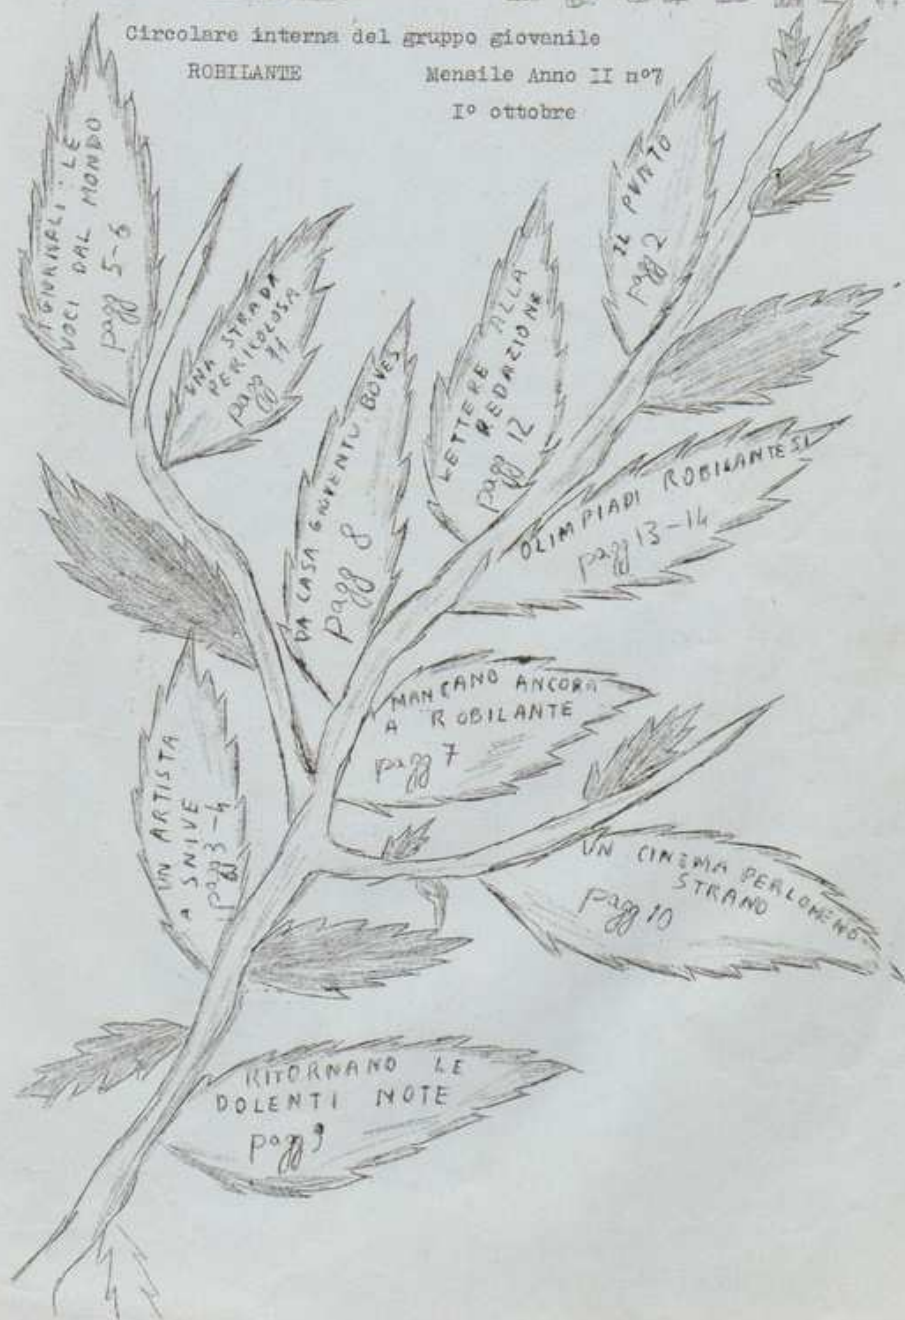 Circolare interna del gruppo giovanile
ROBILANTE Mensile Anno II n°7
I° ottobre
I GIORNALI: LE
VOCI DAL MONDO
pagg 5-6
UNA STRADA
PERICOLOSA
pagg 11
DA CASA GIOVENTU BOVES
pagg 8
LETTERE ALLA
REDAZIONE
pagg 12
IL PUNTO
pagg 2
OLIMPIADI ROBILANTESI
pagg 13-14
MANCANO ANCORA
A ROBILANTE
pagg 7
UN ARTISTA
A SNIVE
pagg 3-4
UN CINEMA PERLOMENO
STRANO
pagg 10
RITORNANO LE
DOLENTI NOTE
pagg 9